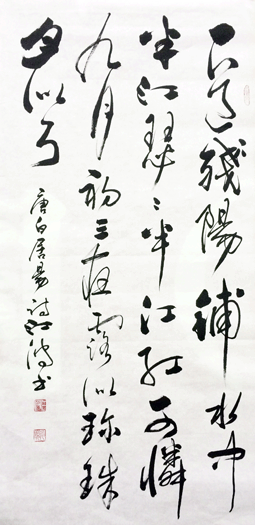 一道殘陽鋪水中
半江瑟〻半江红可憐
九月初三夜露似珍珠
月似弓
唐白居易诗江书